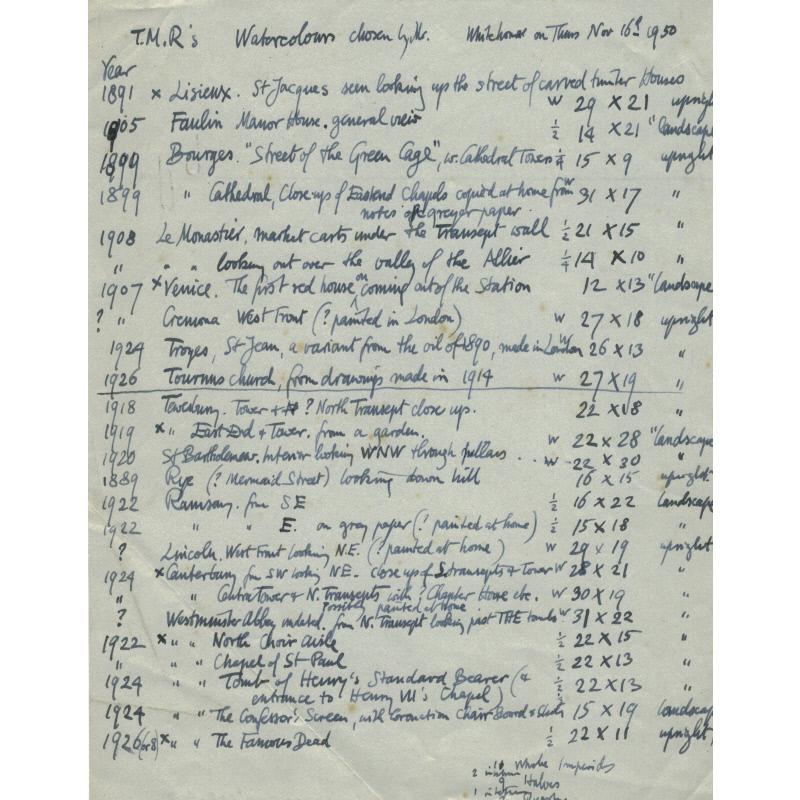 T.M.R's Watercolours chosen by Mr. Whitehouse on Thurs Nov 16th 1950
Year
1891 x Lisieux. St Jacques seen looking up the street of carved timber Houses w 29 x 21 upright
1905 Faulin Manor House. general view ½ 14 x 21 "landscape
1899 Bourges. "Street of the Green Cage", w. Cathedral Towers ¼ 15 x 9 upright
1899 " Cathedral, Close-up of East end Chapels copied at home from w 31 x 17 "
notes on greyer paper.
1908 Le Monastier, market carts under the Transept wall ½ 21 x 15 "
" " looking out over the valley of the Allier ¼ 14 x 10 "
1907 x Venice. The first red house on coming out of the Station 12 x 13 "landscape
? " Cremona West Front (? painted in London) w 27 x 18 upright
1924 Troyes, St Jean, a variant from the oil of 1890, made in London w 26 x 13 "
1926 Tournus church, from drawings made in 1914 w 27 x 19 "
1918 Tewkesbury. Tower + ? North Transept close up. 22 x 18 "
1919 x " East End & Tower. from a garden. w 22 x 28 "landscape
1920 St Bartholomew. Interior looking WNW through pillars .. w 22 x 30 "
1889 Rye (? Mermaid Street) looking down hill 16 x 15 upright.
1922 Ramsay. from SE ½ 16 x 22 landscape
1922 " " E. on grey paper (? painted at home) ½ 15 x 18 "
? Lincoln. West Front looking N.E. (? painted at home) w 29 x 19 upright
1924 x Canterbury from SW looking N.E. close up of S. transepts & Tower w 28 x 21 "
" " Central Tower & N. Transepts with ? Chapter House etc. w 30 x 19 "
possibly painted at home
? Westminster Abbey undated. from N. Transept looking past THE tombs w 31 x 22 "
1922 x " " North Choir aisle ½ 22 x 15 "
" " " Chapel of St Paul ½ 22 x 13 "
1924 " " Tomb of Henry's Standard Bearer (& ½ 22 x 13 "
entrance to Henry VII's Chapel)
1924 " " The Confessor's Screen, with Coronation Chair ½ 15 x 19 landscape
1926 (or 8) x " " The Famous Dead ½ 22 x 11 upright
Whole Imperials
Halves